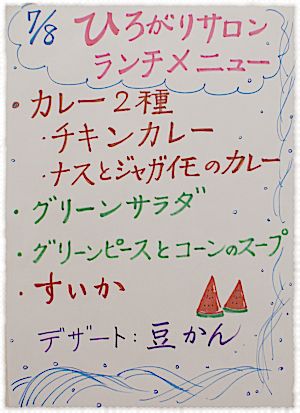 7/8 ひろがりサロン
ランチメニュー
・カレー2種
・チキンカレー
・ナスとジャガイモのカレー
・グリーンサラダ
・グリーンピースとコーンのスープ
・すいか
デザート：豆かん